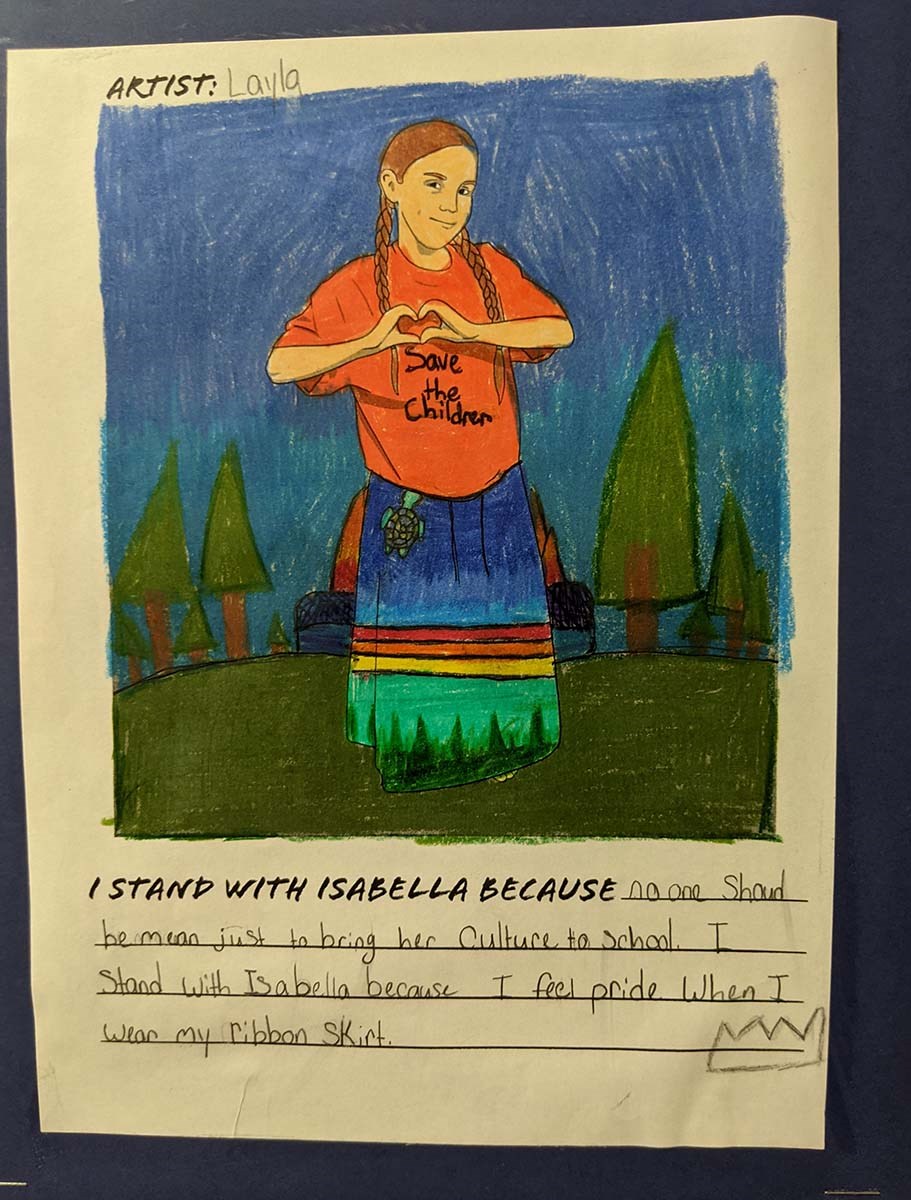 ARTIST: Layla
Save
the
Children
I STAND WITH ISABELLA BECAUSE no one Shoud
be mean just to bring her Culture to School. I
Stand with Isabella because I feel pride When I
wear my ribbon Skirt.